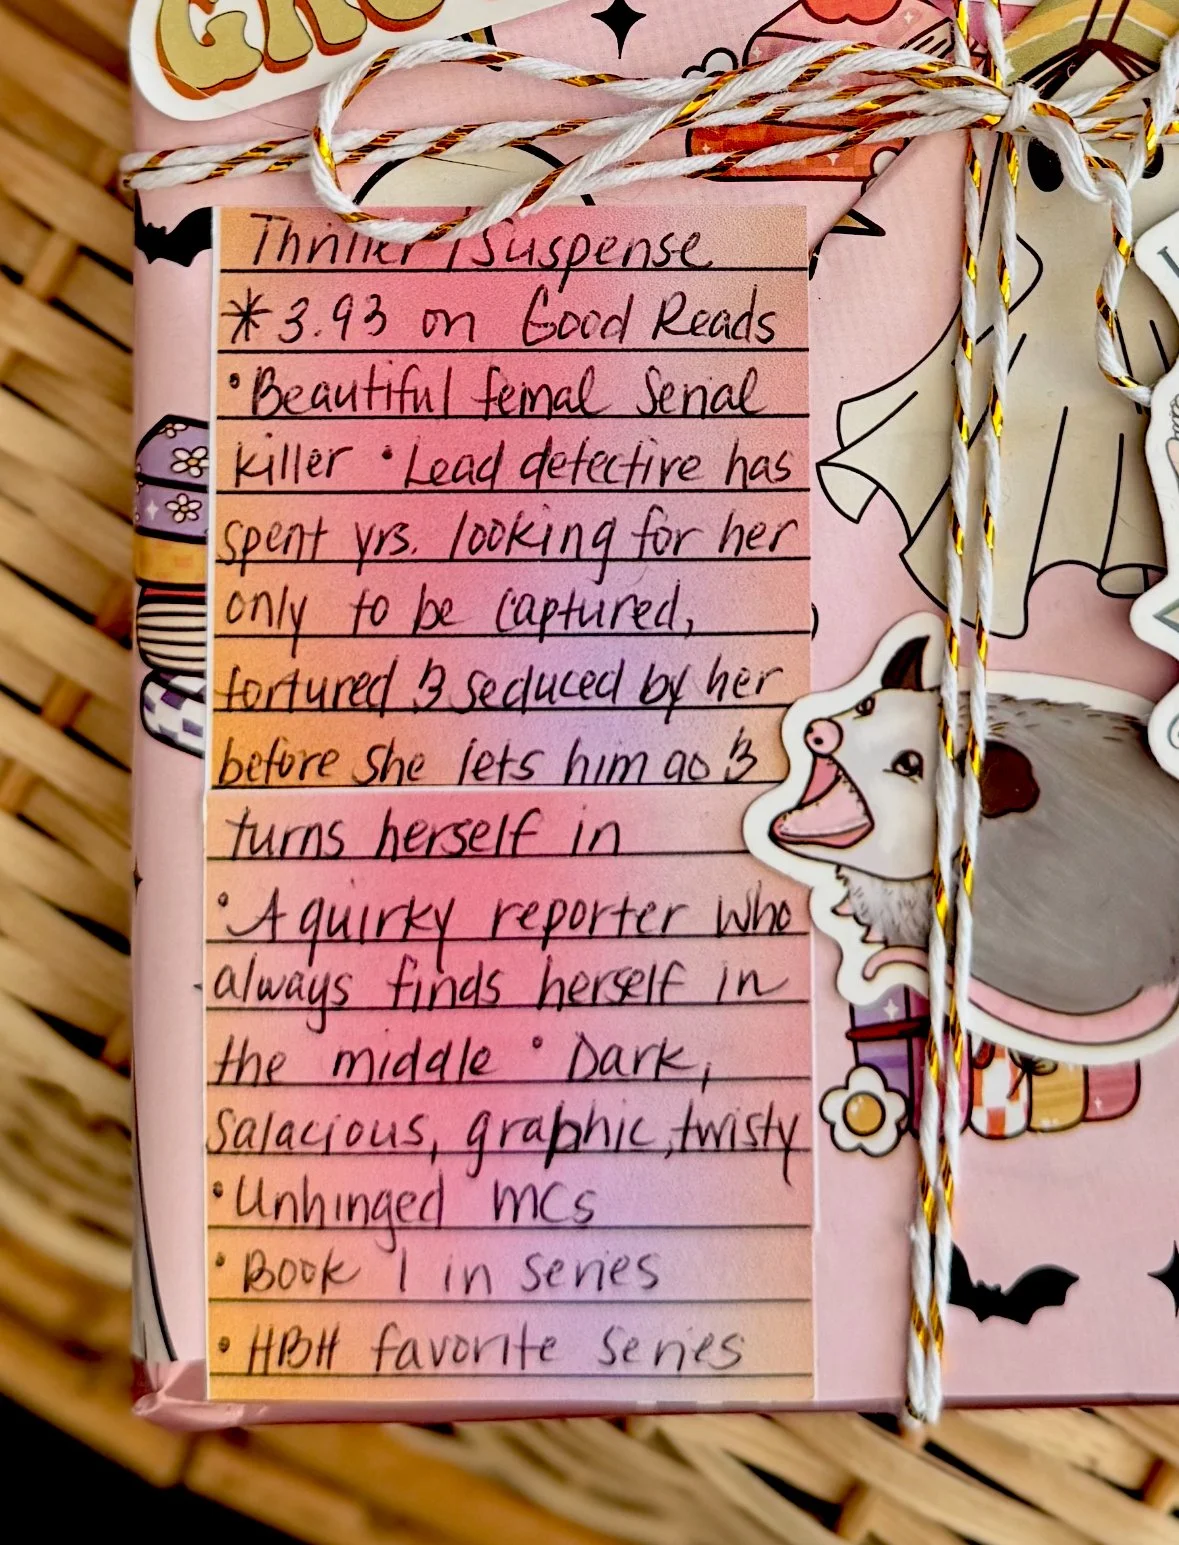 Thriller / Suspense
*3.93 on Good Reads
•Beautiful femal Serial
killer •Lead detective has
spent yrs. looking for her
only to be captured,
tortured & seduced by her
before she lets him go &
turns herself in
•A quirky reporter who
always finds herself in
the middle •Dark,
salacious, graphic, twisty
•Unhinged MCs
•Book 1 in series
•HBH favorite series